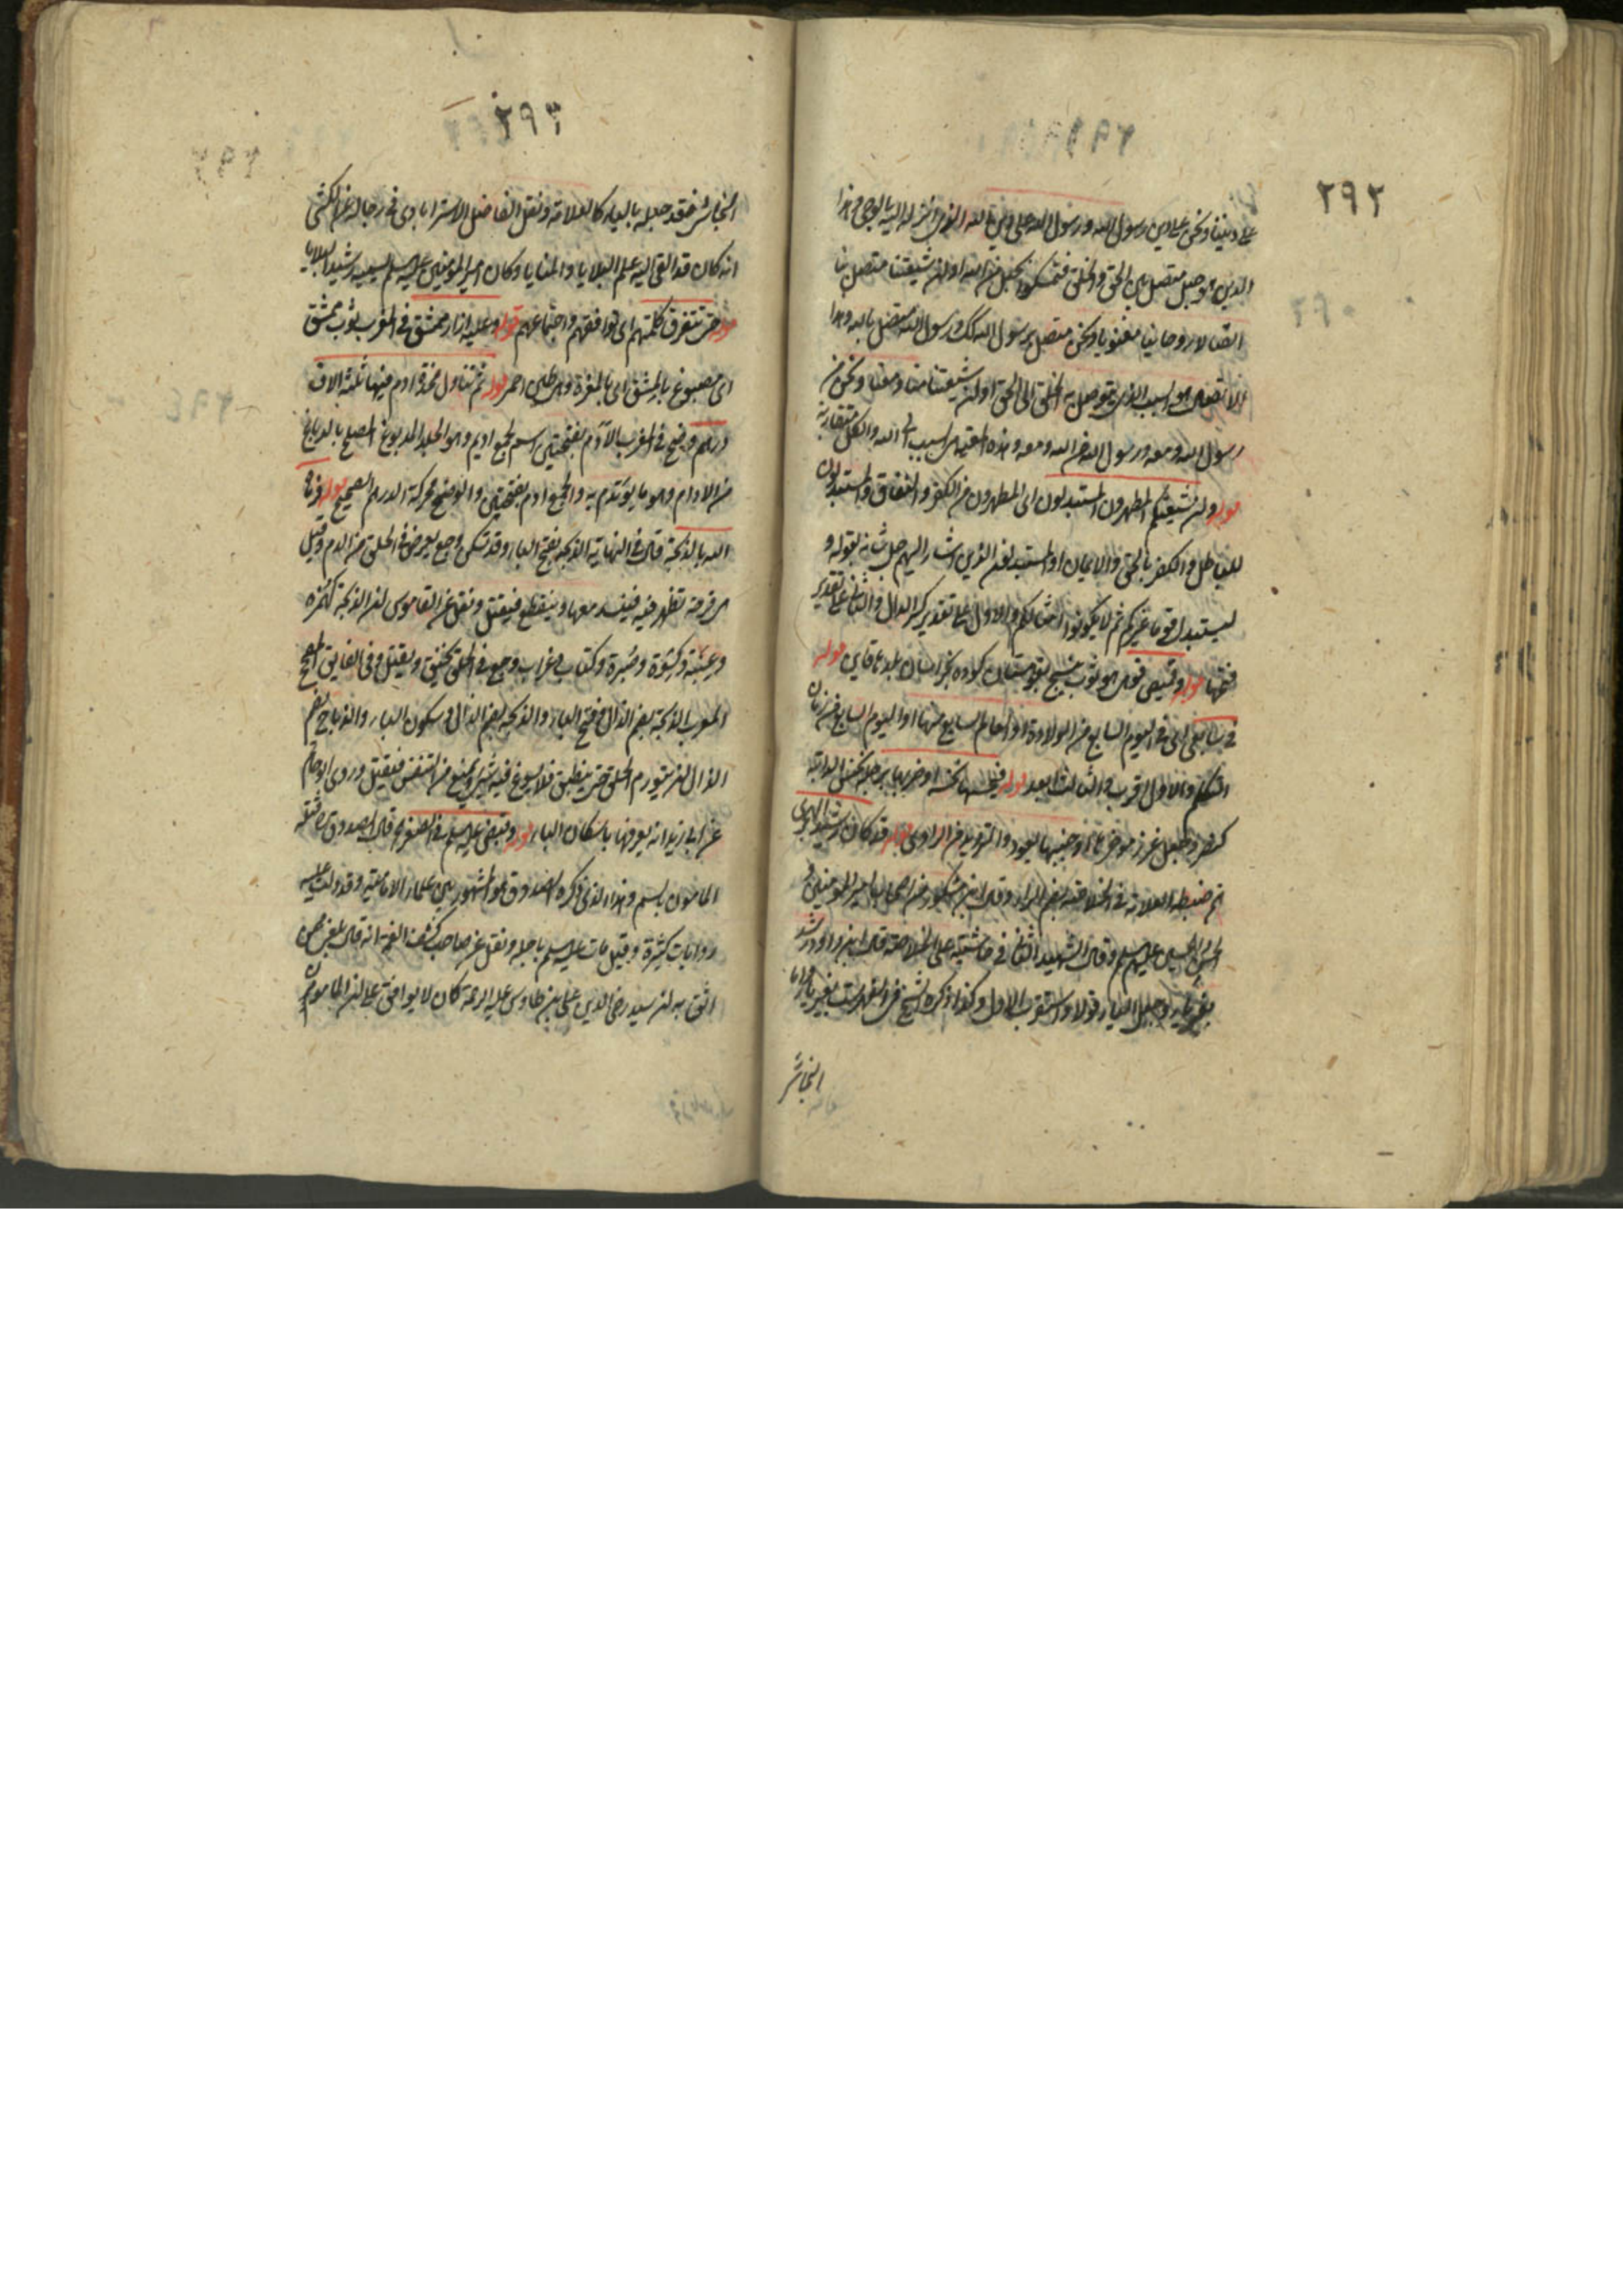 ٢٩٢
على ديننا ونحن على دين رسول الله ورسول الله على دين الله الذي انزله اليه بالوحي وهذا
الدين هو حبل متصل بين الحق والخلق فتمسكوا بحبل من الله او ان شيعتنا متصل بنا
اتصالا روحانيا معنويا ونحن متصل برسول الله كك ورسول الله متصل بالله وهذا
الاتصال هو السبب الذي يتوصل به الخلق الى الحق او ان شيعتنا منا ومعنا ونحن من
رسول الله ومعه ورسول الله من الله ومعه وهذه المعية هي السبب الى الله والكل متقاربة
قوله وان شيعتكم المطهرون المستبدلون اى المطهرون من الكفر والنفاق والمستبدلون
للباطل والكفر بالحق والايمان او المستبدلون الذين اشار اليهم جل شانه بقوله و
ليستبدل قوما غيركم ثم لا يكونوا امثالكم والاول على تقدير كسر الدال والثاني على تقدير
فتحها قوله وقميص قوهى هو ثوب ينسج بقوهستان كوره بخراسان بلدها قاين قوله
في سابعى اى في اليوم السابع من الولادة او العام السابع منها او اليوم السابع من زمان
التكلم والاول اقرب والثالث ابعد قوله فينخسها نخسه او ضربها برجله نخس الدابة
كنصر وجعل غرز مؤخرها او جنبها بعود والترديد من الراوى قوله قد كان رشيد الهجرى
ثم ضبطه العلامة في الخلاصة بضم الراء وقال انه مشكور من اصحاب امير المؤمنين و
الحسن والحسين عليهم السلام وقال الشهيد الثاني في حاشيته على الخلاصة قال ابن داود رشد
بغير ياء وجعل الياء قولا واستقرب الاول وكذا ذكره الشيخ في الفهرست بغير ياء واما
النجاشى
٢٩٣
النجاشى فقد جعله بالياء كالعلامة ونقل الفاضل الاسترابادى في رجاله عن الكشى
انه كان قد القى اليه علم البلايا والمنايا وكان امير المؤمنين عليه السلم يسميه رشيد البلايا
قوله حتى تتفرق كلمتهم اى توافقهم واجتماعهم قوله وعليه ازار ممشق في المغرب ثوب ممشق
اى مصبوغ بالمشق اى بالمغرة وهى طين احمر قوله ثم تناول مخدة ادم فيها ثلثة الاف
درهم وضح في المغرب الادم بفتحتين اسم لجمع اديم وهو الجلد المدبوغ المصلح بالدباغ
من الادام وهو ما يؤتدم به والجمع ادم بضمتين والوضح محركة الدرهم الصحيح قوله فرماه
الله بالذبحة قال في النهاية الذبحة بفتح الباء وقد تسكن وجع يعرض في الحلق من الدم وقيل
هى قرحة تظهر فيه فينسد معها وينقطع فيقتل ونقل عن القاموس ان الذبحة كهمزة
وعنبة وكسرة وصبرة وكتاب وغراب وجع في الحلق يخنق ويقتل وفي الفايق الصحيح
المعرب الذبحة بضم الذال وفتح الباء والذبحة بضم الذال وسكون الباء والذباح بضم
الذال ان يتورم الحلق حتى ينطبق فلا يسوغ فيه شئ ويمنع من التنفس فيقتل وروى ابو حاتم
عن ابى زيد انه يعرفها باسكان الباء قوله وقبض عليه السلم في صفر قال الصدوق ره قتله
المامون بالسم وهذا الذى ذكره الصدوق هو المشهور بين علماء الامامية وقد دلت عليه
روايات كثيرة وقيل مات عليه السلم باجله ونقل عن صاحب كشف الغمة انه قال بلغنى ممن
اثق به ان سيد رضى الدين على بن طاوس عليه الرحمة كان لا يوافق على ان المامون